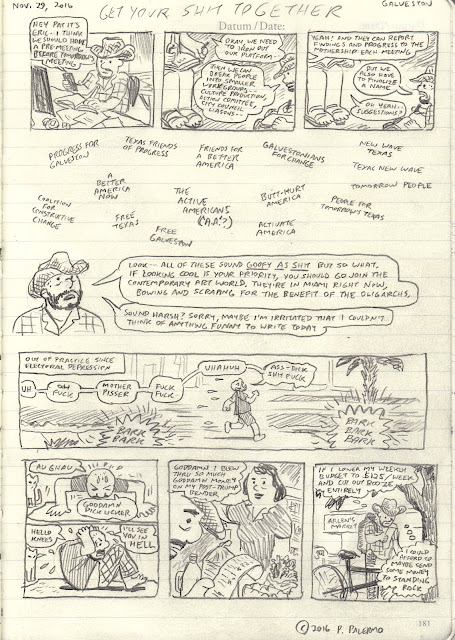 NOV. 29, 2016
GET YOUR SHIT TOGETHER
GALVESTON
Datum / Date:
HEY PAT IT'S
ERIC - I THINK
WE SHOULD HAVE
A PRE-MEETING
BEFORE TOMORROW'S
MEETING
OKAY. WE NEED
TO IRON OUT
OUR PLATFORM.
THEN WE CAN
BREAK PEOPLE
INTO SMALLER
WORKGROUPS -
CULTURE PRODUCTION,
ACTION COMITTEE,
CITY COUNCIL
LIASONS--
YEAH! AND THEY CAN REPORT
FINDINGS AND PROGRESS TO THE
MOTHERSHIP EACH MEETING.
BUT WE
ALSO HAVE
TO FINALIZE
A NAME
OH YEAH--
SUGGESTIONS?
PROGRESS FOR
GALVESTON
TEXAS FRIENDS
OF PROGRESS
FRIENDS FOR
A BETTER
AMERICA
GALVESTONIANS
FOR CHANGE
NEW WAVE
TEXAS
TEXAS NEW WAVE
A
BETTER
AMERICA
NOW
THE
ACTIVE
AMERICANS
("A.A."?)
BUTT-HURT
AMERICA
TOMORROW PEOPLE
PEOPLE FOR
TOMORROW'S TEXAS
COALITION
FOR
CONSTRUCTIVE
CHANGE
FREE
TEXAS
FREE
GALVESTON
ACTIVATE
AMERICA
LOOK-- ALL OF THESE SOUND GOOFY AS SHIT BUT SO WHAT.
IF LOOKING COOL IS YOUR PRIORITY, YOU SHOULD GO JOIN THE
CONTEMPORARY ART WORLD. THEY'RE IN MIAMI RIGHT NOW,
BOWING AND SCRAPING FOR THE BENEFIT OF THE OLIGARCHS.
SOUND HARSH? SORRY, MAYBE I'M IRRITATED THAT I COULDN'T
THINK OF ANYTHING FUNNY TO WRITE TODAY
OUT OF PRACTICE SINCE
ELECTORAL DEPRESSION
UH
FUCK
MOTHER
PISSER
FUCK
FUCK
UHAHUH
ASS-DICK
SHIT FUCK
BARK
BARK
BARK
BARK
BARK
AUGHAU
GODDAMN
DICK LICKER
HELLO
KNEES
I'LL SEE
YOU IN
HELL
GODDAMN I BLEW
THRU SO MUCH
GODDAMN MONEY
ON MY POST-TRUMP
BENDER
IF I LOWER MY WEEKLY
BUDGET TO $125/WEEK
AND CUT OUT BOOZE
ENTIRELY
ARLEN'S
MARKET
I COULD
AFFORD TO
MAYBE SEND
SOME MONEY
TO STANDING
ROCK
© 2016 P. PALERMO
181